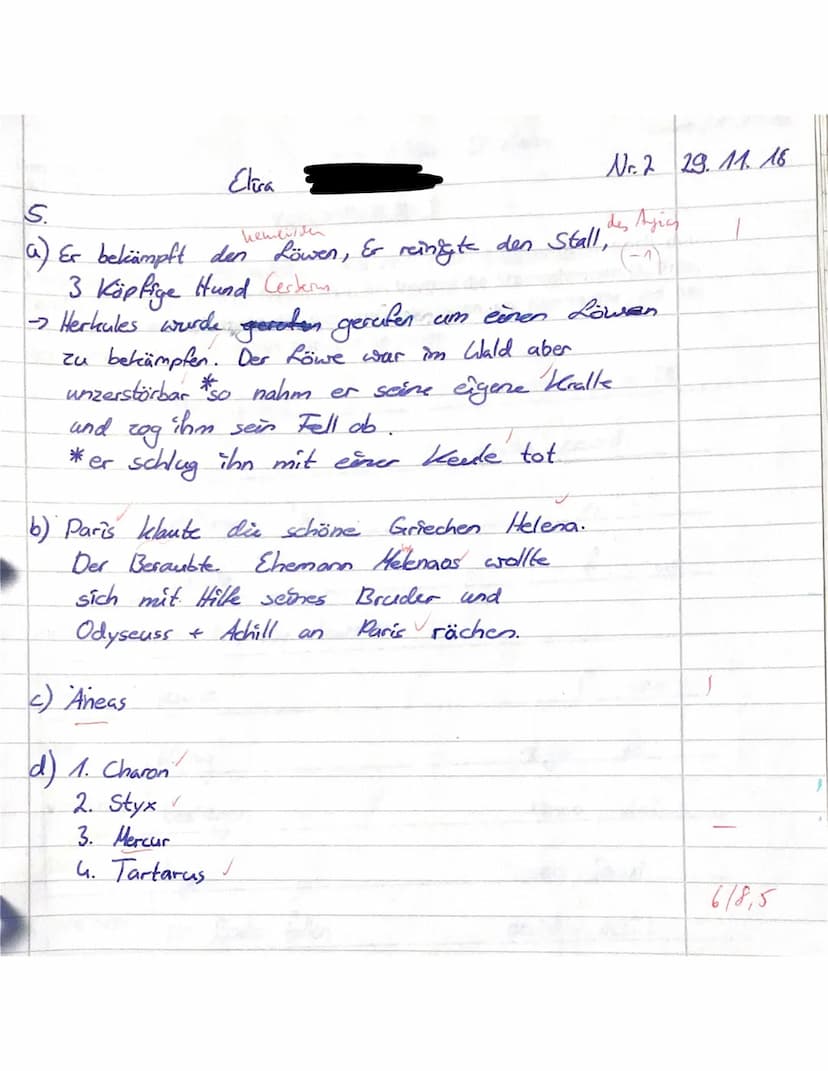 Elira Nr. 2 29. 11. 16
5.
a) Er bekämpft den Löwen, Er reinigte den Stall, des
3 Köpfige Hund
(-1)
→ Herkules wurde gerufen um einen Löwen
zu bekämpfen. Der Löwe war im Wald aber
unzerstörbar *so nahm er seine eigene Kralle
und zog ihm sein Fell ab.
*er schlug ihn mit einer Keule tot
b) Paris klaute die schöne Griechen Helena.
Der Beraubte Ehemann Melenaos wollte
sich mit Hilfe seines Bruder und
Odyseuss + Achill an Paris rächen.
c) Äneas
d) 1. Charon
2. Styx
3. Mercur
4. Tartarus
6/8,5